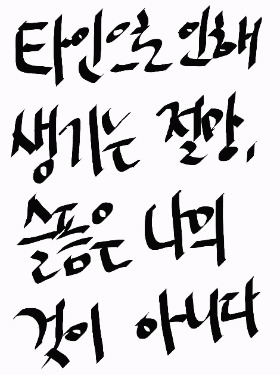 타인으로 인해
생기는 절망,
슬픔은 나의
것이 아니다